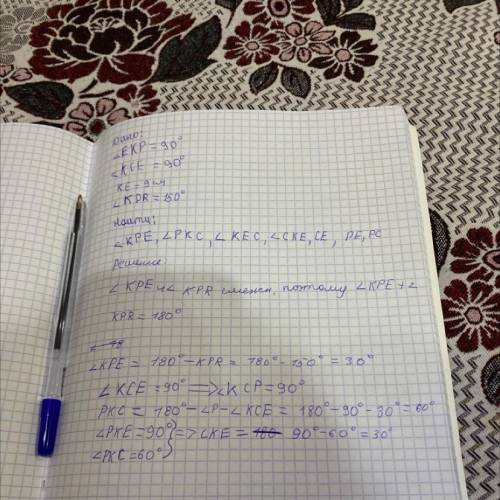 Дано:
∠EKP = 90°
∠KCE = 90°
KE = 9 см
∠KPR = 150°
Найти:
∠KPE, ∠PKC, ∠KEC, ∠CKE, CE, PE, PC
Решение:
∠KPE и ∠ KPR смежн, поэтому ∠KPE + ∠
KPR = 180°
∠KPE = 180° - KPR = 180° - 150° = 30°
∠KCE = 90° => ∠KCP = 90°
PKC = 180° - ∠P - ∠KCE = 180° - 90° - 30° = 60°
∠PKE = 90° } => CKE = 180 90° - 60° = 30°
∠PKC = 60°